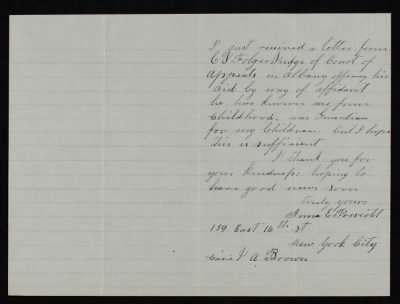 I just received a letter from
C J Folger Judge of Court of
Appeals in Albany offering his
aid by way of affidavit
he has known me from
Childhood, was Guardian
for my Children. but I hope
this is sufficient
I thank you for
your kindness: hoping to
have good news soon
truly yours
Anna E
139 East 16th st
New York City
Care A Brown